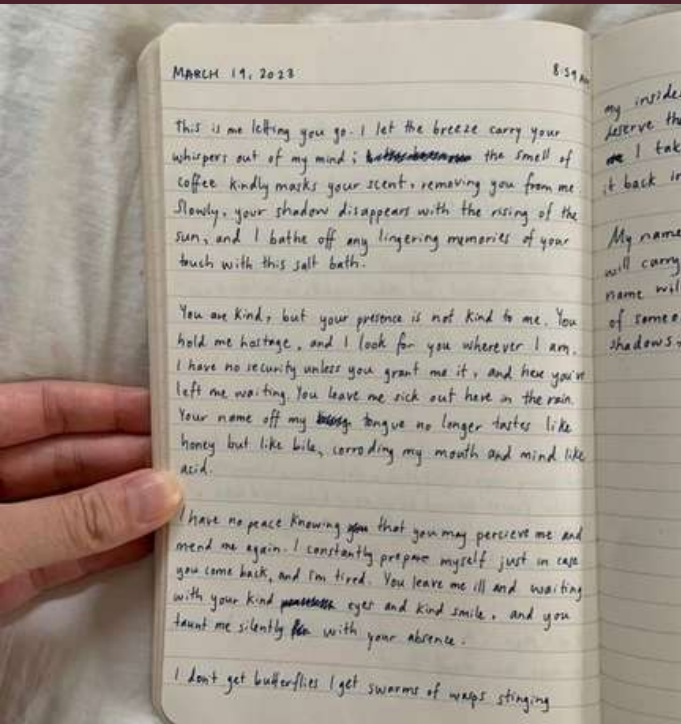 MARCH 19, 2023
8:59 AM
This is me letting you go. I let the breeze carry your
whispers out of my mind; the smell of
coffee kindly masks your scent, removing you from me
slowly, your shadow disappears with the rising of the
sun, and I bathe off any lingering memories of your
touch with this salt bath.
You are kind, but your presence is not kind to me. You
hold me hostage, and I look for you wherever I am.
I have no security unless you grant me it, and here you've
left me waiting. You leave me sick out here in the rain.
Your name off my tongue no longer tastes like
honey but like bile, corroding my mouth and mind like
acid.
I have no peace knowing that you may percieve me and
mend me again. I constantly prepare myself just in case
you come back, and I'm tired. You leave me ill and waiting
with your kind eyes and kind smile, and you
taunt me silently with your absence.
I don't get butterflies I get swarms of wasps stinging
my inside
deserve th
I tak
it back in
My name
will carry
name wil
of someo
shadows.